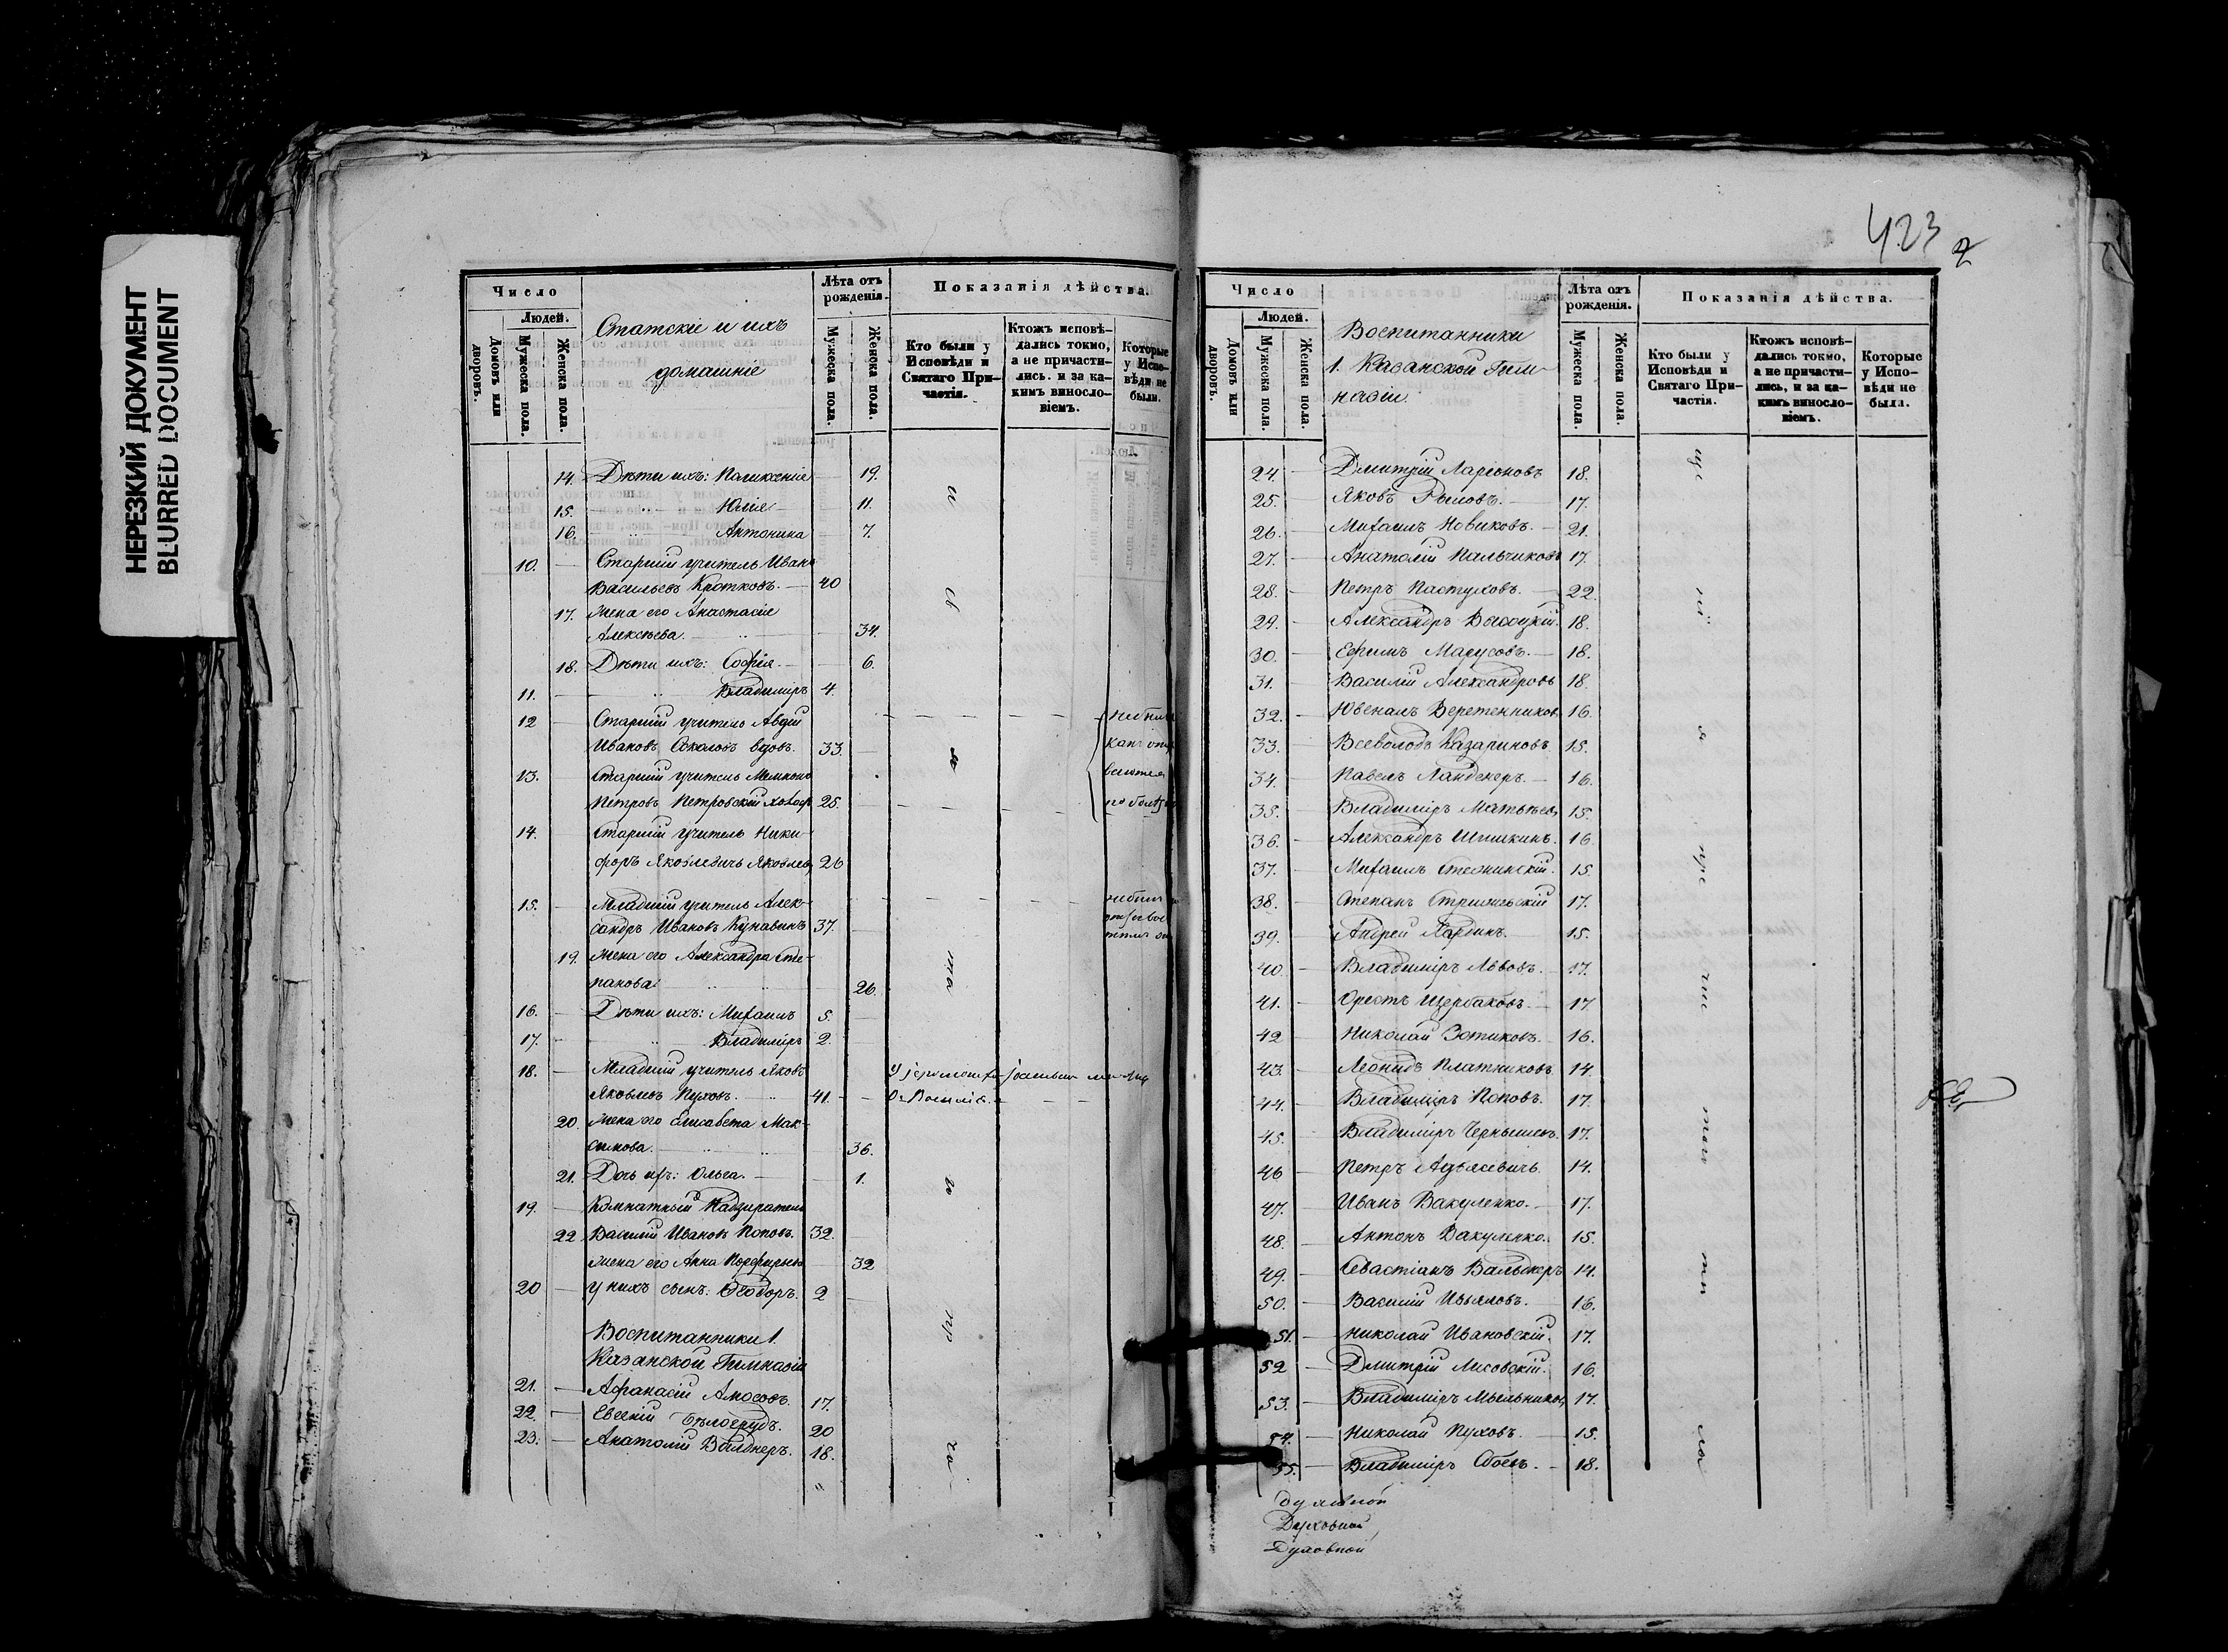 НЕРЕЗКИЙ ДОКУМЕНТ
BLURRED DOCUMENT
Число
Людей.
Домовъ или дворовъ.
Мужеска пола.
Женска пола.
Статскіе и ихъ
домашніе
Лѣта отъ рожденія.
Мужеска пола.
Женска пола.
Показанія дѣйства.
Кто были у Исповѣди и Святаго Причастія.
Ктожъ исповѣ-
дались токмо,
а не причасти-
лись. и за ка-
кимъ винosло-
віемъ.
Которые
у Испо-
вѣди не
были.
14. Дѣти ихъ: Поликсенія 19.
15. " Юлія 11.
16. " Антонина 7.
10. Старшій учитель Иванъ
Васильевъ Кротковъ. 40
17. Жена его Анастасія
Алексѣева. 34.
18. Дѣти ихъ: Софія. 6.
11. " Владиміръ 4.
12 Старшій учитель Авдій
Ивановъ Соколовъ вдовъ. 33.
13. Старшій учитель
Петровъ Петровскій 25.
14. Старшій учитель Ники-
форъ Яковлевичъ Яковлевъ 26
15. Младшій учитель Алек-
сандръ Ивановъ Кунавинъ 37.
19. Жена его Александра Сте-
панова 26.
16. Дѣти ихъ: Михаилъ 5.
17. " Владиміръ 2.
18. Младшій учитель Яковъ
Яковлевъ Пуховъ. 41.
20. Жена его Елисавета Мак-
симова. 36.
21. Дочь ихъ: Ольга. 1.
19. Комнатный Надзиратель
22. Василій Ивановъ Поповъ. 32.
Жена его Анна Порфирьева 32
20 У нихъ сынъ: Ѳеодоръ. 2
Воспитанники 1.
Казанской Гимназіи
21. Афанасій Амосовъ. 17.
22. Евсевій Бѣлоерудъ. 20
23. Анатолій Валднеръ. 18.
423
2
Число
Людей.
Домовъ или дворовъ.
Мужеска пола.
Женска пола.
Воспитанники
1. Казанской Гим-
назіи.
Лѣта отъ рожденія.
Мужеска пола.
Женска пола.
Показанія дѣйства.
Кто были у
Исповѣди и
Святаго При-
частія.
Ктожъ исповѣ-
дались токмо,
а не причасти-
лись, и за ка-
кимъ винosло-
віемъ.
Которые
у Испо-
вѣди не
были.
24. Дмитрій Ларіоновъ 18.
25. Яковъ Рымовъ. 17.
26. Михаилъ Новиковъ. 21.
27. Анатолій Пальчиковъ 17.
28. Петръ Пастуховъ. 22.
29. Александръ Высоцкій. 18.
30. Ефимъ Марусовъ. 18.
31. Василій Александровъ 18.
32. Ювеналъ Веретенниковъ 16.
33. Всеволодъ Казариновъ 15.
34. Павелъ Ландекеръ. 16.
35. Владиміръ Матвѣевъ 15.
36. Александръ Шишкинъ. 16
37. Михаилъ 15.
38. Степанъ 17.
39. Андрей 15.
40. Владиміръ Львовъ. 17.
41. Орестъ Щербаковъ. 17
42 Николай Зотиковъ. 16.
43. Леонидъ Платниковъ 14.
44. Владиміръ Поповъ. 17.
45. Владиміръ Чернышевъ. 17.
46 Петръ 14.
47. Иванъ Вакуленко. 17.
48. Антонъ Вакуленко. 15.
49. Севастіанъ Вальднеръ 14.
50. Василій Ивьяловъ. 16.
51. Николай Ивановскій. 17.
52 Дмитрій Лисовскій. 16.
53. Владиміръ Мельниковъ 17.
54. Николай Пуховъ. 15.
55. Владиміръ Сбоевъ. 18.
Духовной
Духовной
Духовной